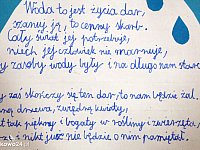 Woda to jest życia dar,
szanuj ją, to cenny skarb.
Cały świat jej potrzebuje,
niech jej człowiek nie marnuje,
by zasoby wody były i na długo nam
zaś skończy się ten dar, to nam będzie żal,
drzewa, zwiędną kwiaty,
tak piękny i bogaty w rośliny i zwierzęta
i nikt już nie będzie o nim pamiętał.